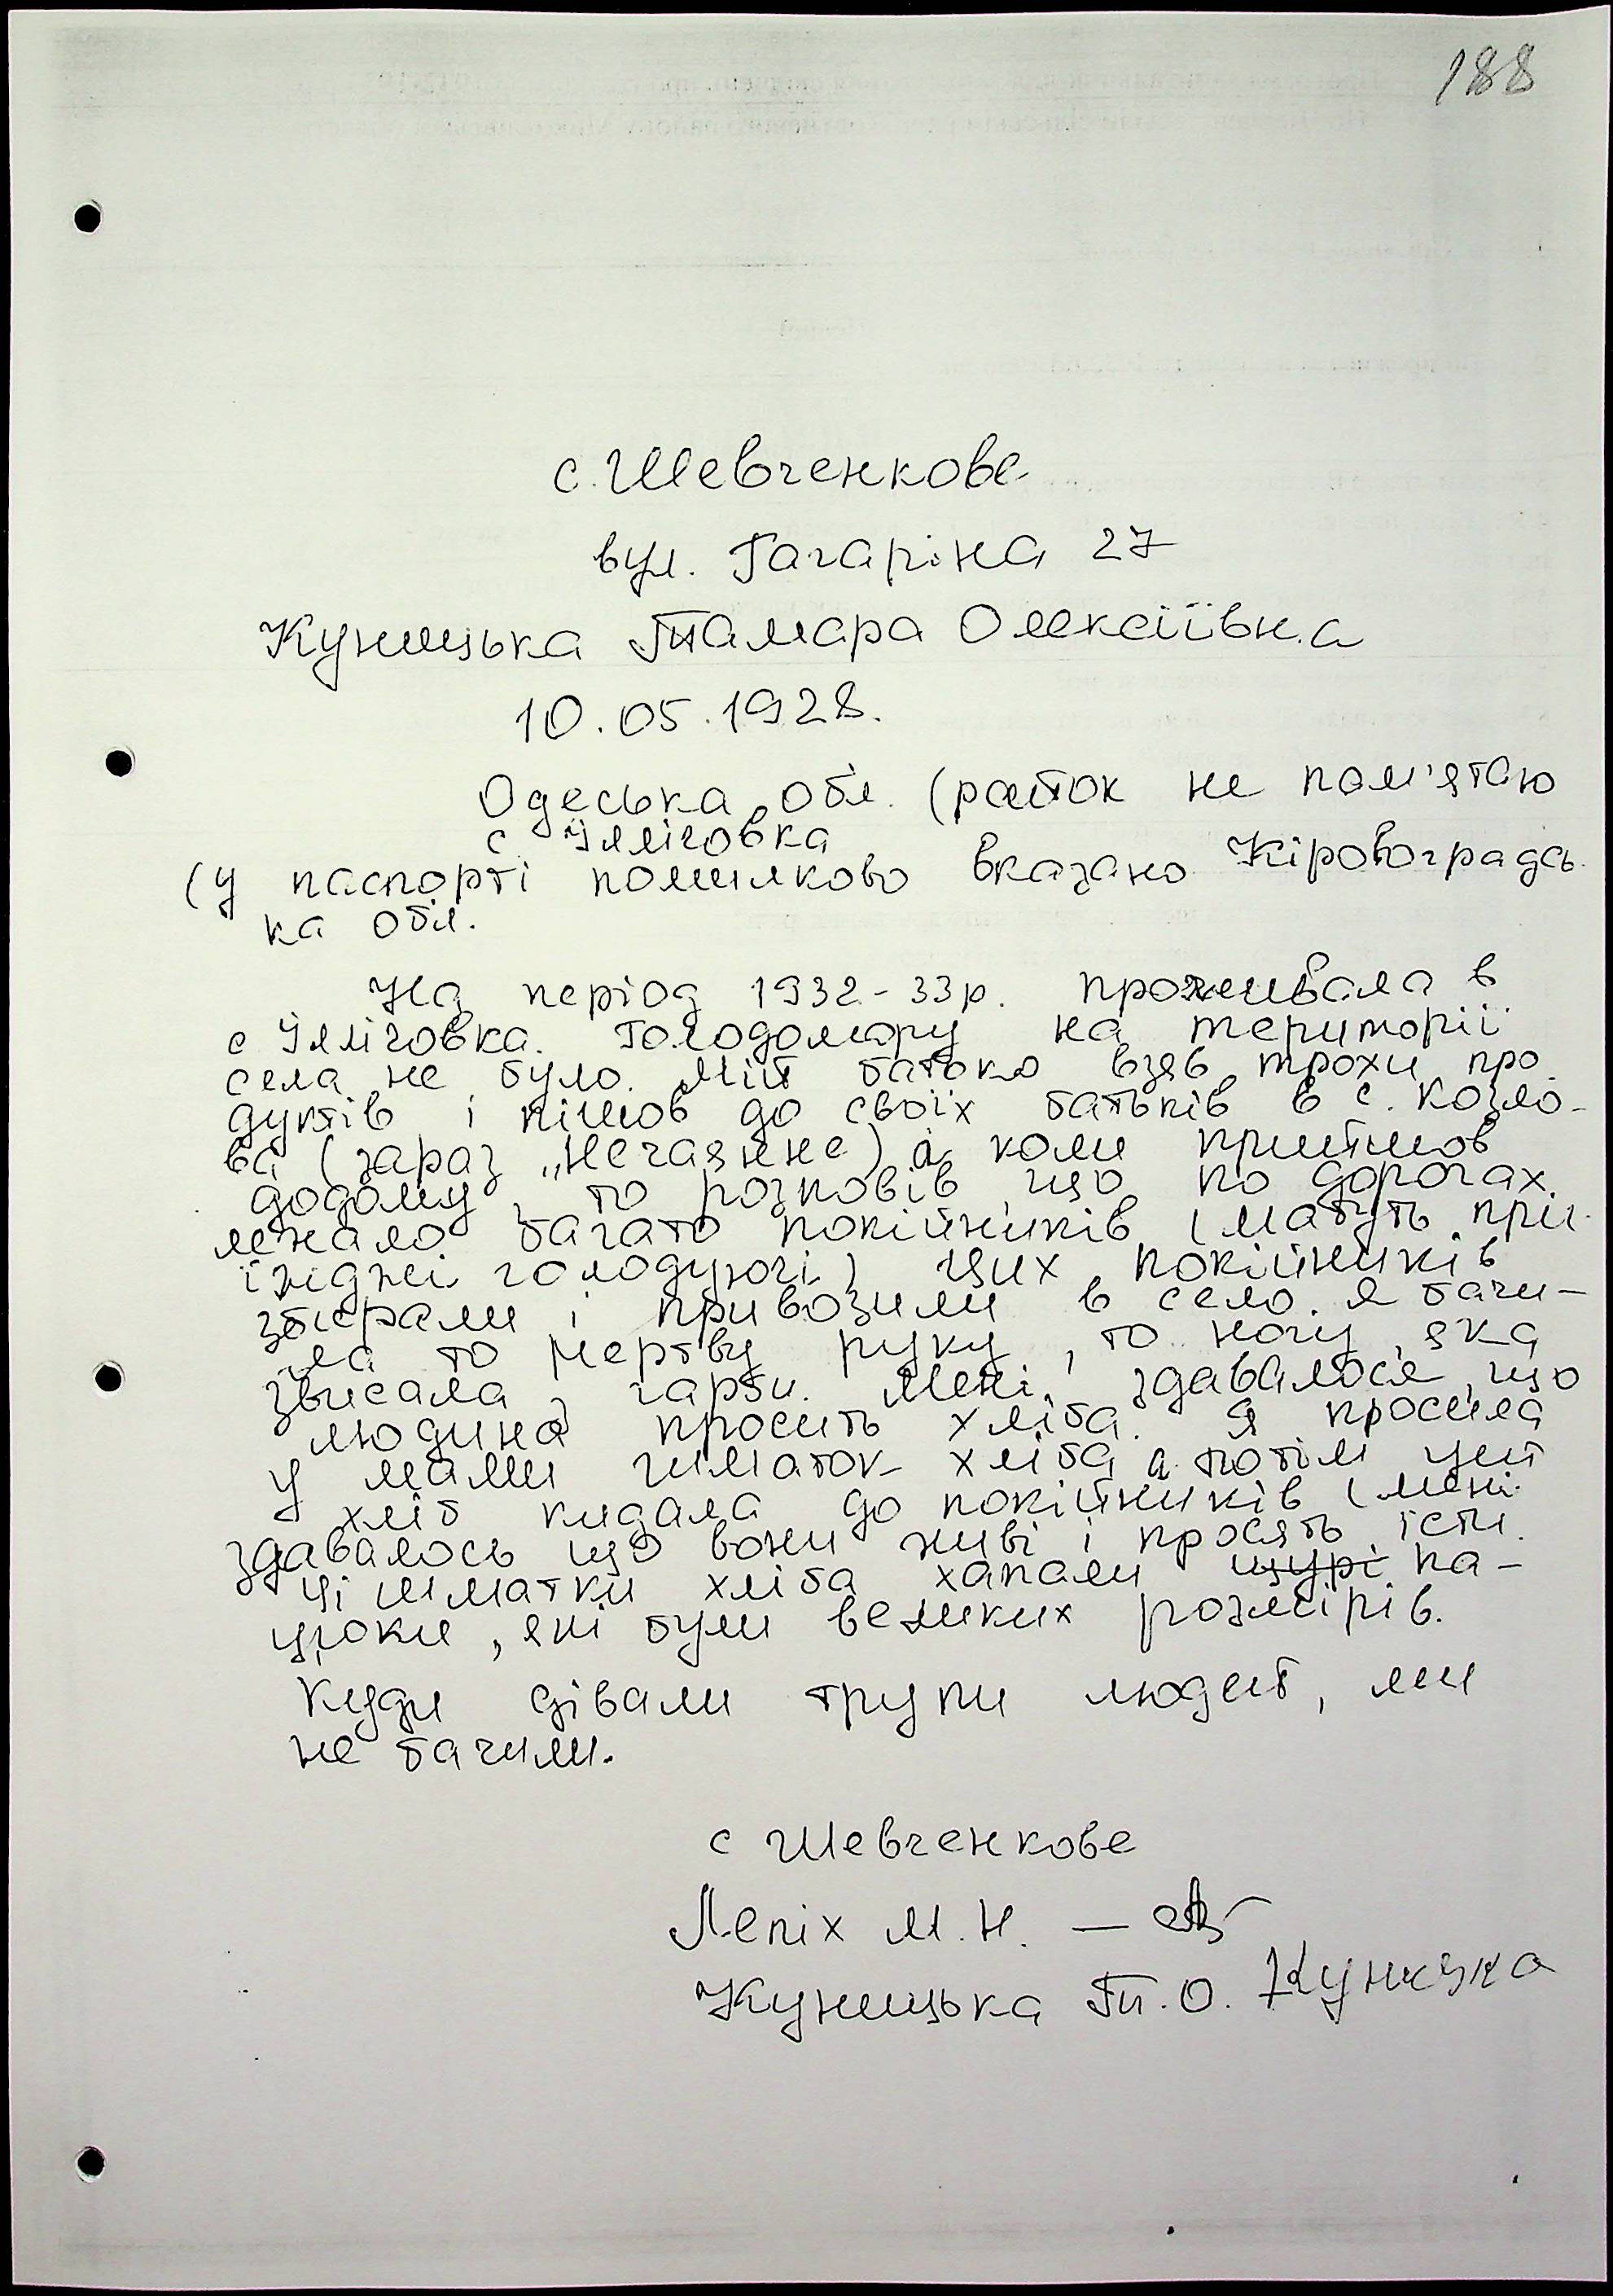 188
с. Шевченкове
вул. Гагаріна 27
Куницька Тамара Олексіївна
10.05.1928.
Одеська обл. (район не пам'ятаю
с Іллічовка
(у паспорті помилково вказано Кіровоградсь
ка обл.
На період 1932-33р. проживала в
с Іллічовка. Голодомору на території
села не було. Мій батько взяв трохи про
дуктів і пішов до своїх батьків в с. Козло-
ва (зараз „Нечаянне) а коли прийшов
додому, то розповів що по дорогах
лежало багато покійників (мабуть при
їжджі голодуючі) цих покійників
збирали і привозили в село. Я бачи-
ла то мертву руку, то ногу, яка
звисала з гарби. Мені здавалося що
людина просить хліба. Я просила
у мами шматок хліба а потім цей
хліб кидала до покійників (мені
здавалось що вони живі і просять їсти.
Ці шматки хліба хапали щурі па-
цюки, які були великих розмірів.
Куди дівали трупи людей, ми
не бачили.
с Шевченкове
Лепіх М.Н. —
Куницька Т.О. Куницка